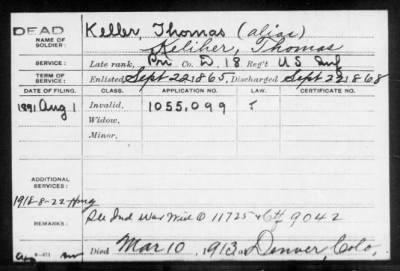 DEAD
NAME OF SOLDIER: Keller, Thomas (alias)
Keliher, Thomas
SERVICE: Late rank, Pri Co. D. 18 Reg't US Inf
TERM OF SERVICE: Enlisted Sept 22 1865, Discharged Sept 22 1868
DATE OF FILING. CLASS. APPLICATION NO. LAW. CERTIFICATE NO.
1891 Aug 1 Invalid. 1055,099
Widow.
Minor.
ADDITIONAL SERVICES:
1912-8-22
REMARKS: See Ind War 11725 9042
Died Mar 10, 1913, at Denver, Colo.